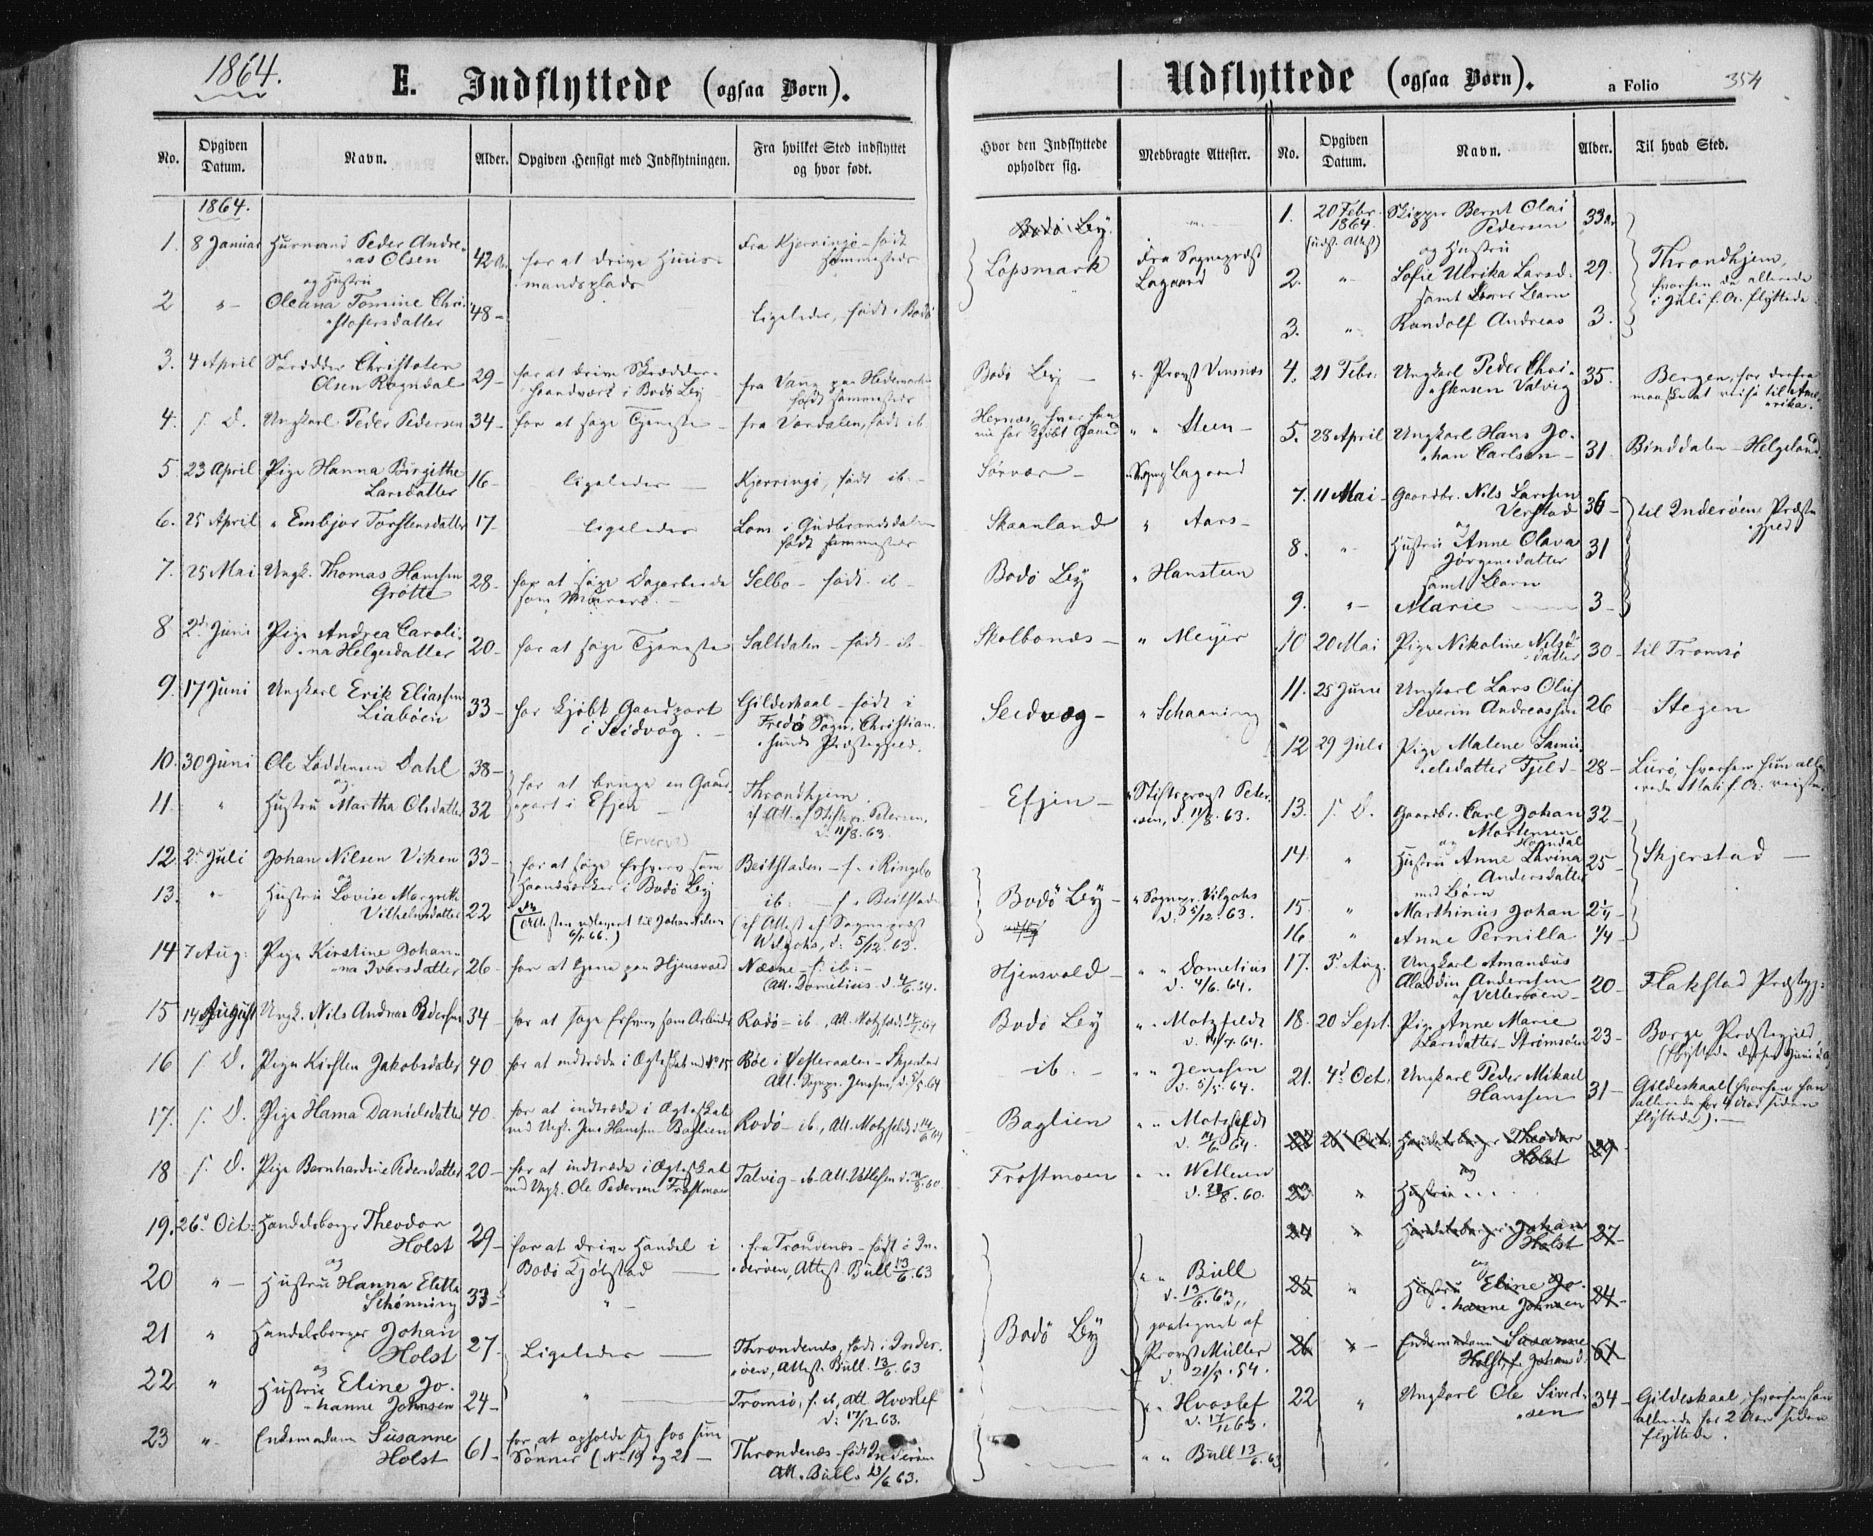 1864.
E. Indflyttede (ogsaa Børn).
No.
Opgiven Datum.
Navn.
Alder.
Opgiven Hensigt med Indflytningen.
Fra hvilket Sted indflyttet og hvor født.
1864.
1. 8 Januar Huusmand Peder Andre-
as Olsen 42 Aar for at drive Huus-
mandsplads Fra Kjerringø - født
sammesteds
og Hustru
2 " - Oleana Tomine Chri-
stofersdatter 48 - Ligeledes, født i Bodø
3. 4 April Skrædder Christofer
Olsen Rogndal 29 - for at drive Skrædder-
haandværk i Bodø By fra Vang paa Hedemarken
født sammesteds
4. s. D. Ungkarl Peder Pedersen 34 - for at søge Tjeneste - fra Værdalen, født ib.
5 23 April Pige Hanna Birgithe
Larsdatter 16 - ligeledes - Kjerringø, født ib. -
6. 25 April " Embjør Torstensdatter 17 - ligeledes Lom i Gudbrandsdalen
født sammesteds
7. 25 Mai Ungk. Thomas Hansen
Grøtte 28 - for at søge Dagarbeide
som Murer. - Selbo - født ib -
8 2d Juni Pige Andrea Caroli-
na Helgesdatter 20 - for at søge Tjeneste Saltdalen - født ib -
9. 17 Juni Ungkarl Erik Eliassen
Liabøen 33 - har kjøbt Gaardpart
i Seidvog. - Gildeskaal - født i
Fredø Sogn, Christian-
sunds Præstegjeld.
10. 30 Juni Ole Loddensen Dahl 38 - for at bruge en Gaard-
part i Efjen -
og
11. " Hustru Martha Olsdatter 32 Throndhjem
cf. Att. af Stiftspr. Petersen,
d. 11/8. 63.
(Erverv?)
12 2d Juli Johan Nilsen Viken 33 - for at søge Erhverv som
Haandværker i Bodø By Beitstaden - f. i Ringebo
og
13. " Hustru Lovise Margreth
Vilhelmsdatter 22 (Attesten udleveret til Johan Nilsen
6/5 66.) ib: - f. i Beitstad
(cf Attest af Sognepræst
Wilgohs, d. 5/12. 63.
14 7 Aug: Pige Kirstine Johan-
na Iversdatter 26 - for at tjene paa Hjensvold Næsne - f. ib: -
(Att. Dometius d. 4/6. 64.
15 14 August Ungk. Nils Andreas Pedersen 34 - for at søge Erhverv som Arbeids Rødø - ib., Att. Motzfeldt 14/7 64
16 s. D. Pige Kirsten Jakobsdatter 40 for at indtræde i Ægteskab med No 15 Bøe i Vesteraalen - Skjerstad
Att. Sognepr. Jenssen, d. 5/5. 64
17. s. D. Pige Hanna Danielsdatter 40 for at indtræde i Ægteskab
med Ungk. Jens Hansen Baglien Rødø - ib., Att. Motzfeldt d. 14/6 64
18 s. D. Pige Bernhardine Pedersdatter 20 - for at indtræde i Ægteskab
med Ungk. Ole Pedersen Frostmoen Talvig - ib. Att.
19. 26d Oct: Handelsborger Theodor
Holst 29 - for at drive Handel i
Bodø Kjøbstad - fra Trondenæs - født i In-
derøen, Attest Bull 13/6. 63
og
20 " - Hustru Hanna Elette
Schønning 33 - " -
21 " Handelsborger Johan
Holst 27 - Ligeledes - Throndenæs, født i Inder-
øen, Attest Bull. 13/6 63
og
22 " Hustru Eline Jo-
hanne Johnsen 24 - " Tromsø, f. ib, att. Hvoslef
d: 17/12 63.
23 " - Enkemadam Susanne
Holst 61 - for at opholde sig hos sine
Sønner (No 19 og 21 - Throndenæs - født Inderøen
Att. Bull. 13/6 63.
Udflyttede (ogsaa Børn).
a Folio 354
Hvor den Indflyttede opholder sig.
Medbragte Attester.
No.
Opgiven Datum.
Navn.
Alder.
Til hvad Sted.
Bodø By.
Løpsmark Fra Sognepræst
Lagaard
Bodø By - " Provst
" " Steen -
Sørvær - " Sognepr Lagaard
Skaanland " Aars -
Bodø By " Hansteen
Skolbonæs - " Meyer
Seidvæg - " Schaaning
Efjen - " Stiftsprovst Peter-
sen, d. 11/8. 63.
Bodø By - " Sognepr. Vilgohs
d. 5/12. 63.
Hjensvold - " " Dometius
d. 4/6. 64.
Bodø By " " Motzfeldt
d. 14/7. 64.
- ib. - " " Jenssen
d. 5/5. 64.
Baglien " " Motzfeldt
d. 14/6. 64.
Frostmoen " "
d. 28/8. 60.
Bodø By " " Bull
d. 13/6. 63,
paategnet af
Provst Müller
d. 21/5. 54.
" " Hvoslef
d. 17/12 63.
" " Bull 13/6. 63
1. 20 Febr.
1864.
(udst. Attest) Skipper Bernt Olai
Pedersen 33 Aar
og Hustru
2. " - Sofie Ulrika Larsd. 29.
samt Børn
3. " Randolf Andreas 3. Throndhjem,
hvorhen de allerede
i Juli f. A. flyttede
4. 21 Febr. Ungkarl Peder Chri-
stensen Valvig 35. Bergen, for derfra
maaske at reise til Ame-
rika.
5. 28 April Ungkarl Hans Jo-
han Carlsen - 31. Binddalen - Helgeland.
7. 11 Mai - Gaardbr. Nils Larssen
Verstad 36 - til Inderøens Præste-
gjeld
og
8. " - Hustru Anne Olava
Jørgensdatter 31
samt Barn
9. " - Marie 3 -
10 20 Mai Pige Nikoline Nils-
datter 30 - til Tromsø
11. 25 Juni Ungkarl Lars Oluf
Severin Andreassen 26 Stegen
12 29 Juli Pige Malene Samu-
elsdatter Fjeld - 28 - Lurø, hvorhen hun alle-
rede Mai f. A. reiste
13. s. D. Gaardbr. Carl Johan
Mortensen
Hogndal 32 - Skjerstad -
og
14 " Hustru Anne Lavina
Andersdatter 25 -
med Børn
15 " Marthinus Johan 2 1/4
16 " Anne Pernilla 1/4
17. 3d Aug. Ungkarl Amandus
Aladdin Andersen
af Vetterøen - 20 - Flakstad Præstegj:
18. 20 Sept. Pige Anne Marie
Larsdatter Strømsøen 23 - Borge Præstegjeld,
(flyttede derhen Juni d. A.
21. 4d Oct. Ungkarl Peder Mikael
Hanssen 31 - Gildeskaal (hvorhen han
allerede for 4 Aar siden
flyttede). -
22 26d Oct. Handelsborger Theodor
Holst 29
og
23. " Hustru ...
24 " Handelsborger Johan
Holst 27 -
og
25 " Hustru Eline Jo-
hanne Johnsen 24 -
26 " - Enkemadam Susanne
Holst, f. Johansd. 61 -
22 " Ungkarl Ole Sivert-
sen 34 - Gildeskaal, hvorhen han
allerede for 2 Aar siden
flyttede.